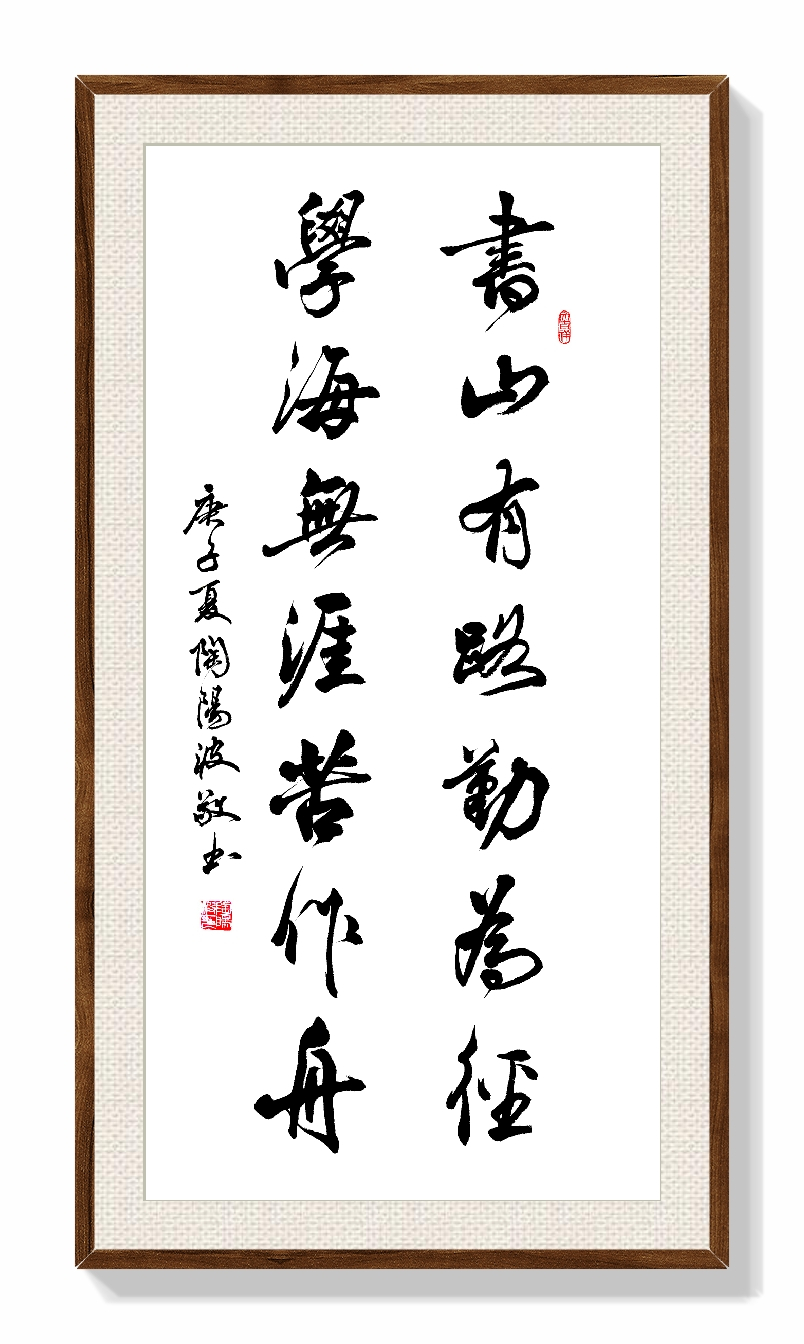 書山有路勤為徑
學海無涯苦作舟
庚子夏陶陽波敬书